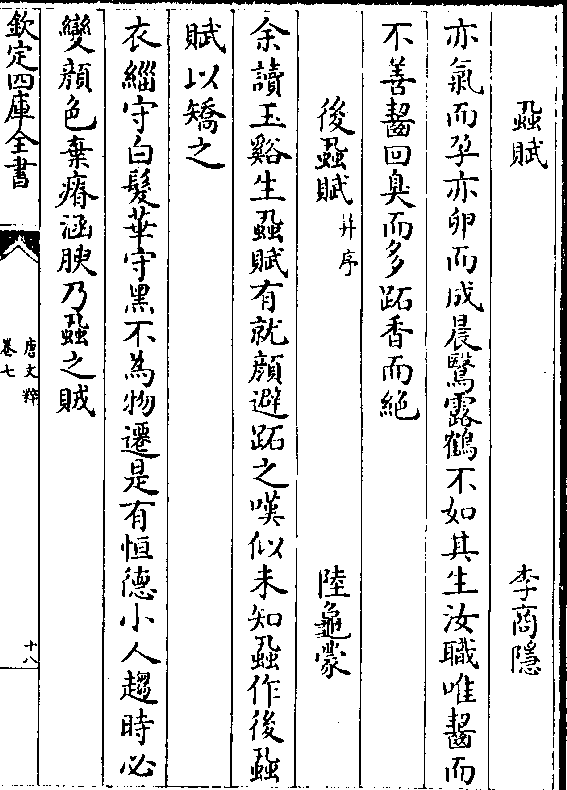 蝨賦　李商隱
亦氣而孕亦卵而成晨鷖露鶴不如其生汝職唯齧而
不善齧回臭而多跖香而絶
後蝨賦　并序　陸龜蒙
余讀玉谿生蝨賦有就顔避跖之嘆似未知蝨作後蝨
賦以矯之
衣緇守白髮華守黑不為物遷是有恒德小人趨時必
變顔色棄瘠涵腴乃蝨之賊
欽定四庫全書
唐文粹
卷七
十八